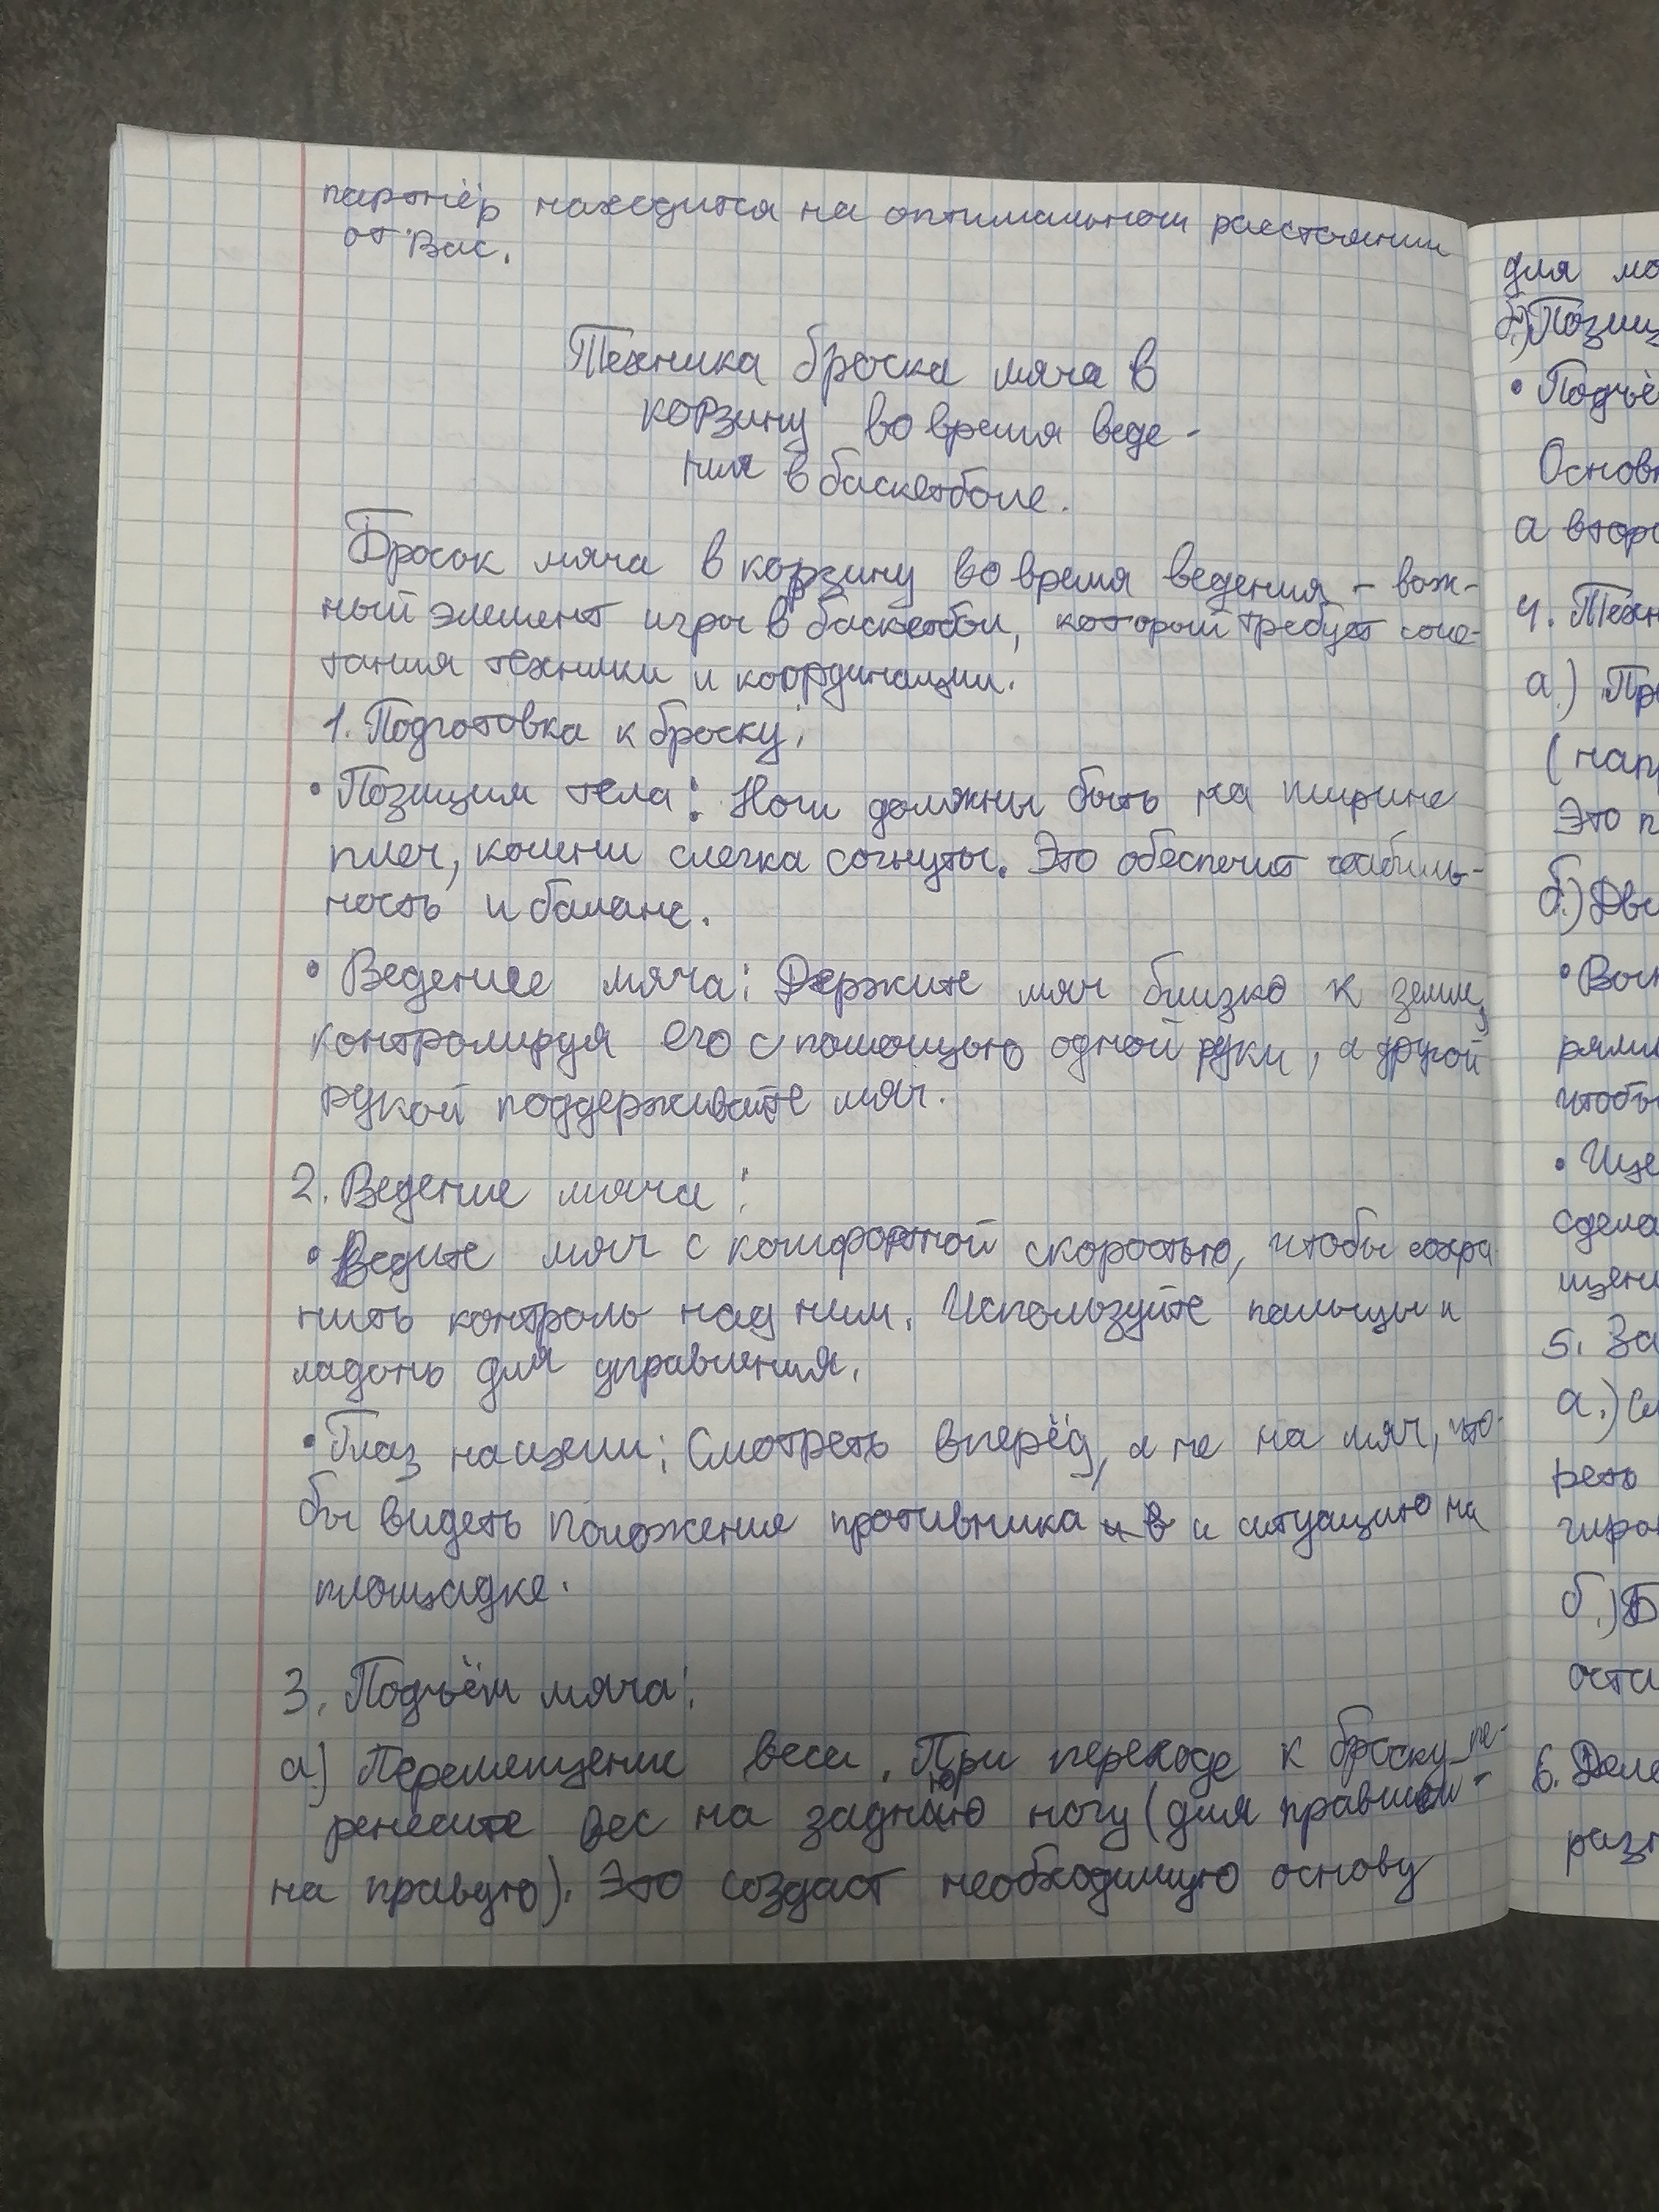 партнёр находится на оптимальном расстоянии
от Вас.
Техника броска мяча в
корзину во время веде-
ния в баскетболе.
Бросок мяча в корзину во время ведения - важ-
ный элемент игры в баскетбол, который требует соче-
тания техники и координации.
1. Подготовка к броску:
• Позиции тела: Ноги должны быть на ширине
плеч, колени слегка согнуты. Это обеспечит стабиль-
ность и баланс.
• Ведение мяча: Держите мяч близко к земле,
контролируя его с помощью одной руки, а другой
рукой поддерживайте мяч.
2. Ведение мяча:
• Ведите мяч с комфортной скоростью, чтобы сохра-
нить контроль над ним. Используйте пальцы и
ладонь для управления.
• Глаз на цели: Смотреть вперёд, а не на мяч, что-
бы видеть положение противника и в и ситуацию на
площадке.
3. Подъём мяча:
а) Перемещение веса. При переходе к броску пе-
ренесите вес на заднюю ногу (для правшей -
на правую). Это создаст необходимую основу
для
б)
• Подъё
Основ
а втор
4. Техн
а.) Пр
(нап
Это п
б.) Дв
•
рями
чтобы
•
сдела
щени
5. За
а.)
реть
гиро
б.) Б
оста
6.
разг